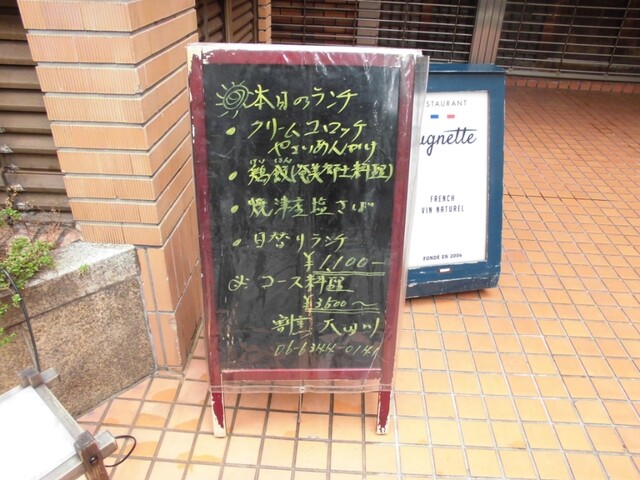 本日のランチ
• クリームコロッケ
やさいあんかけ
• 鶏飯(奄美郷土料理)
けいはん
• 焼津産塩さば
• 日替りランチ
¥1,100-
コース料理
¥3,500～
割烹 天四川
06-6344-0141
STAURANT
ugnette
FRENCH
VIN NATUREL
FONDÉ EN 2006